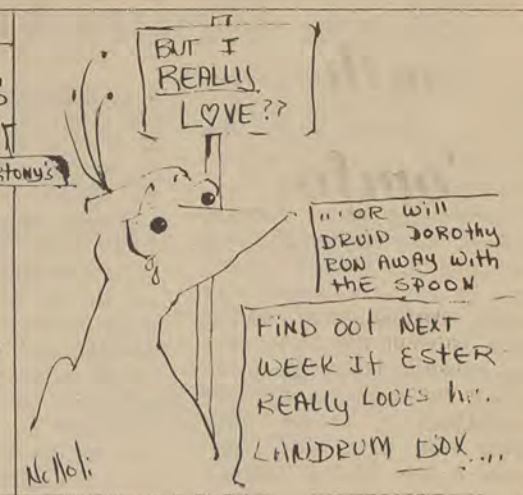 BUT I
REALLY
L♡VE??
tony's
... OR WiLL
DRUiD DOROthy
RUN AWAY With
thE SPOON
FiND OUt NEXT
WEEK If ESTER
REALLy LOVES
LANDRUM BOX ...